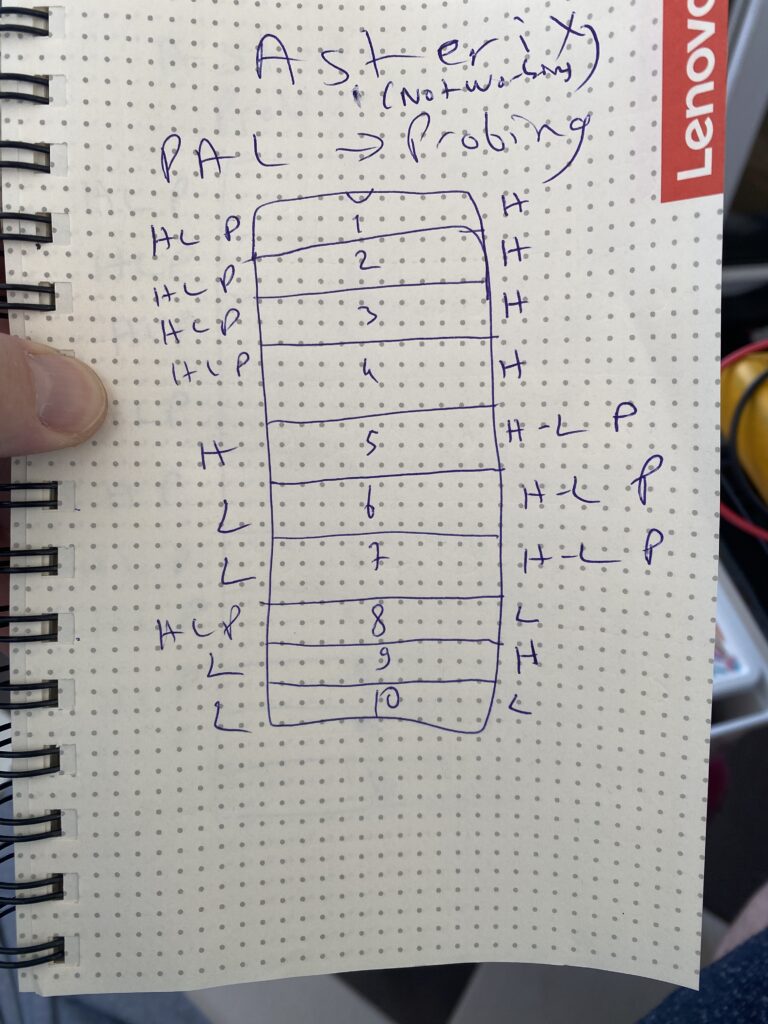 Asterix
(Not working)
PAL → Probing
HL P 1 H
HL P 2 H
HL P 3 H
HL P 4 H
H 5 H-L P
L 6 H-L P
L 7 H-L P
HLP 8 L
L 9 H
L 10 L
Lenovo